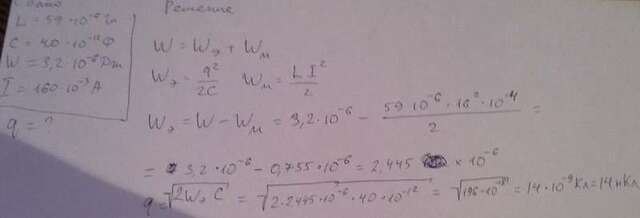 Дано
L = 59·10⁻⁶ Гн
C = 40·10⁻¹² Ф
W = 3,2·10⁻⁶ Дж
I = 160·10⁻³ А
q = ?
Решение
W = Wэ + Wм
Wэ = q²/2C Wм = LI²/2
Wэ = W − Wм = 3,2·10⁻⁶ − 59·10⁻⁶·16²·10⁻⁴/2 =
= 3,2·10⁻⁶ − 0,755·10⁻⁶ = 2,445 × 10⁻⁶
q = √2Wэ C = √2·2.2445·10⁻⁶·40·10⁻¹² = √196·10⁻¹⁸ = 14·10⁻⁹ Кл = 14 нКл